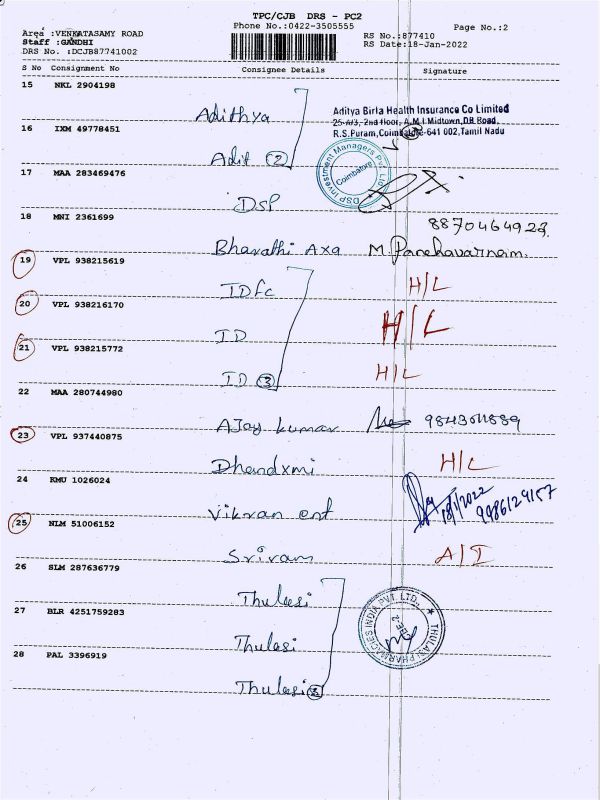 TPC/CJB DRS - PC2
Phone No.:0422-3505555
Page No.:2
Area :VENKATASAMY ROAD
Staff :GANDHI
DRS No. :DCJB87741002
RS No.:877410
RS Date:18-Jan-2022
S No Consignment No Consignee Details Signature
15 NKL 2904198
Adithya
Aditya Birla Health Insurance Co Limited
25-A/3, 2nd Floor, A.M.I.Midtown,DB Road,
R.S.Puram,Coimbatore-641 002,Tamil Nadu
16 IXM 49778451
Adit 2
17 MAA 283469476
DSP
DSP Investment Managers Pvt. Ltd.
Coimbatore
18 MNI 2361699
Bharathi Axa M. Panchavarnam.
19 VPL 938215619
IDFC H/L
20 VPL 938216170
ID H/L
21 VPL 938215772
ID 3 H/L
22 MAA 280744980
AJay kumar
23 VPL 937440875
Dhandxmi H/L
24 KMU 1026024
Vikran ent 18/1/2022
25 NLM 51006152
Sriram A/I
26 SLM 287636779
Thulasi
27 BLR 4251759283
Thulasi
THULASI PHARMACIES INDIA PVT. LTD.
28 PAL 3396919
Thulasi 3